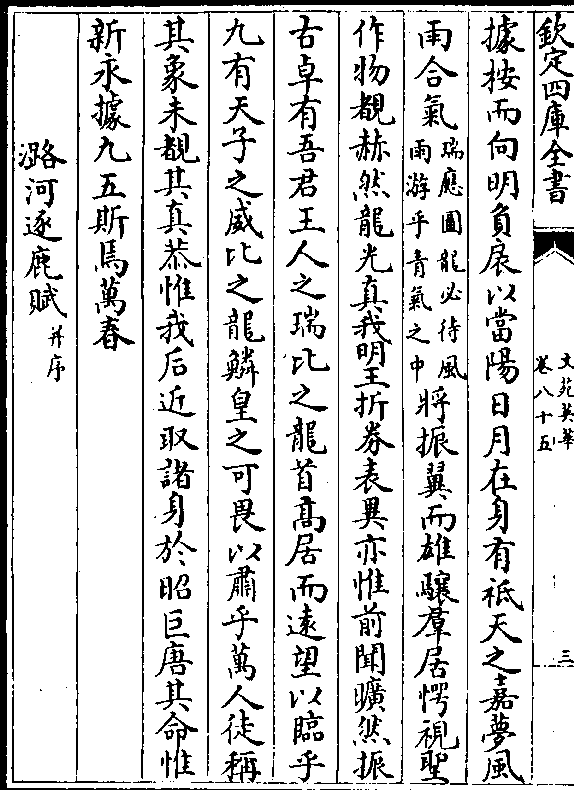 欽定四庫全書
文苑英華
卷八十五
三
據按而向明負扆以當陽日月在身有祗天之嘉夢風
雨合氣瑞應圖龍必待風雨游乎青氣之中將振翼而雄驤羣居愕視聖
作物覩赫然龍光真我明王折券表異亦惟前聞曠然振
古卓有吾君王人之瑞比之龍首髙居而遠望以臨乎
九有天子之威比之龍鱗皇之可畏以肅乎萬人徒稱
其象未覩其真恭惟我后近取諸身於昭巨唐其命惟
新永據九五斯焉萬春
潞河逐鹿賦并序